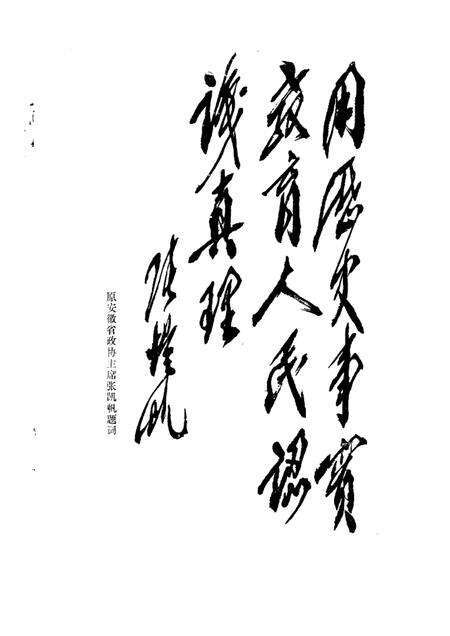 用歷史事實
教育人民認
識真理
张愷帆
原安徽省政协主席张凯帆题词